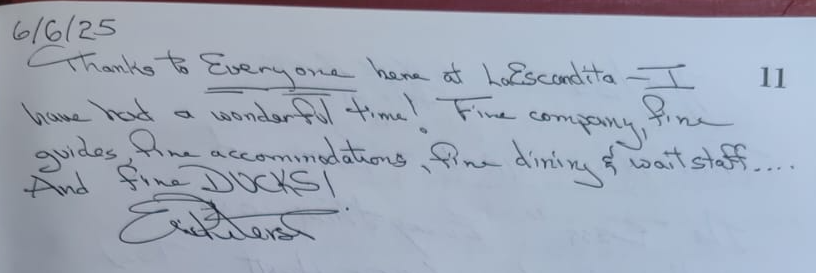 6/6/25
Thanks to Everyone here at LaEscondita – I
11
have had a wonderful time! Fine company, fine
guides, fine accommodations, fine dining & wait staff....
And fine DUCKS!